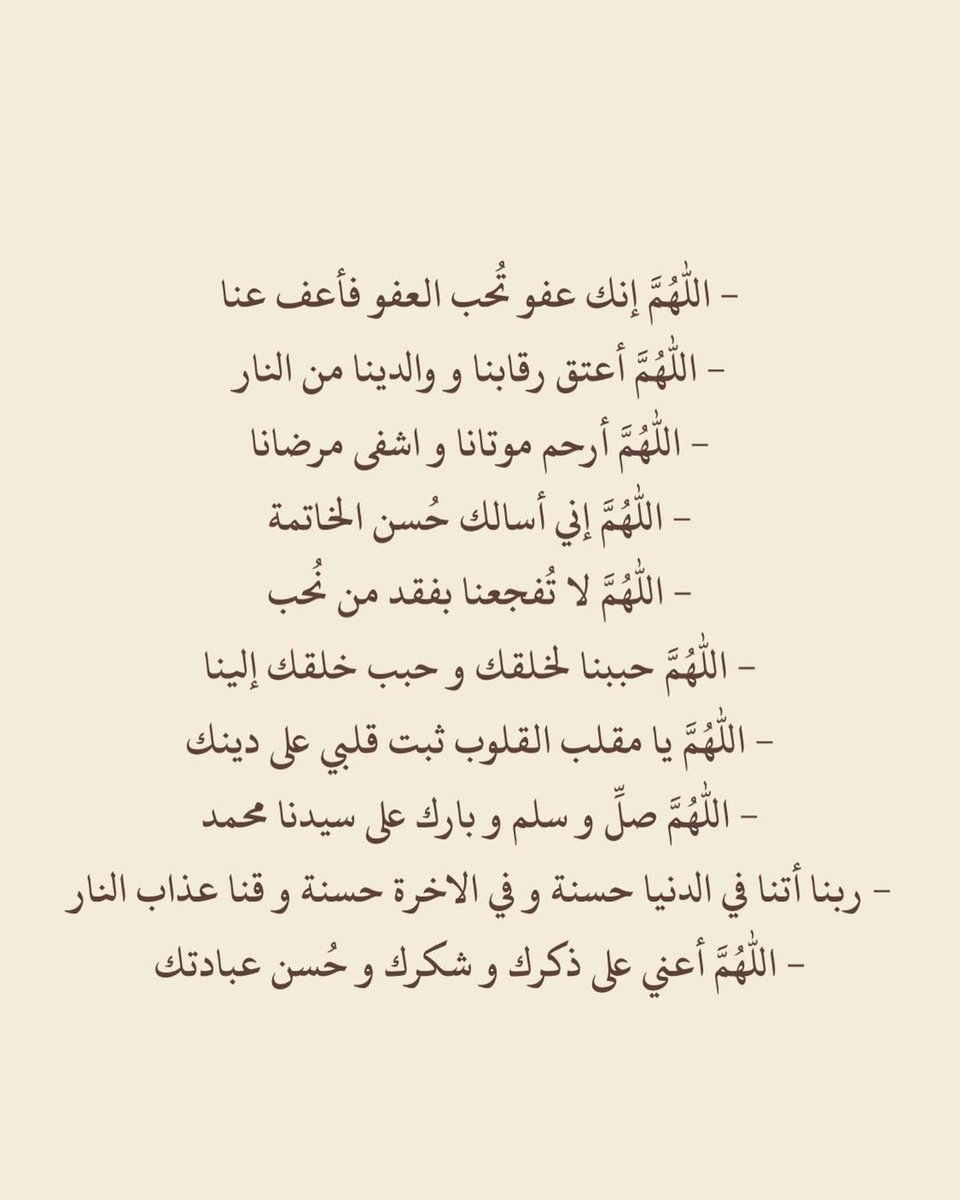 – اللّٰهُمَّ إنك عفو تُحب العفو فأعف عنا
– اللّٰهُمَّ أعتق رقابنا و والدينا من النار
– اللّٰهُمَّ أرحم موتانا و اشفى مرضانا
– اللّٰهُمَّ إني أسالك حُسن الخاتمة
– اللّٰهُمَّ لا تُفجعنا بفقد من نُحب
– اللّٰهُمَّ حببنا لخلقك و حبب خلقك إلينا
– اللّٰهُمَّ يا مقلب القلوب ثبت قلبي على دينك
– اللّٰهُمَّ صلِّ و سلم و بارك على سيدنا محمد
– ربنا أتنا في الدنيا حسنة و في الاخرة حسنة و قنا عذاب النار
– اللّٰهُمَّ أعني على ذكرك و شكرك و حُسن عبادتك